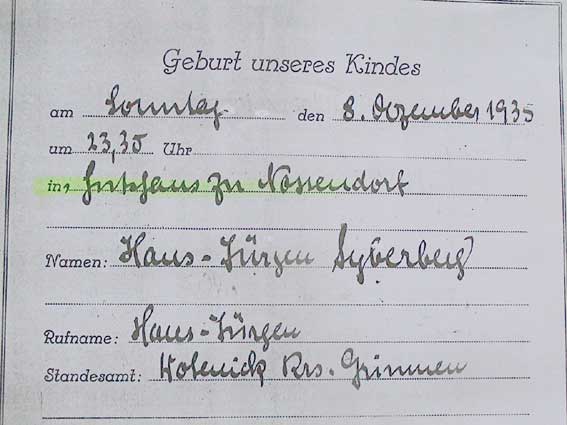 Geburt unseres Kindes
am Sonntag den 8. Dezember 1935
um 23,35 Uhr
in, Gutshaus zu Nossendorf
Namen: Hans-Jürgen Syberberg
Rufname: Hans-Jürgen
Standesamt: Wotenick Krs. Grimmen